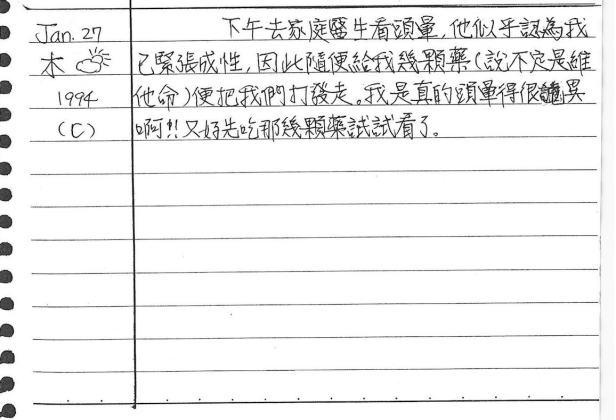 Jan. 27
木
1994
(C)
下午去家庭醫生看頭暈,他似乎認為我
已緊張成性,因此隨便給我幾顆藥(說不定是維
他命)便把我們打發走。我是真的頭暈得很詭異
啊!!又好先吃那幾顆藥試試看了。